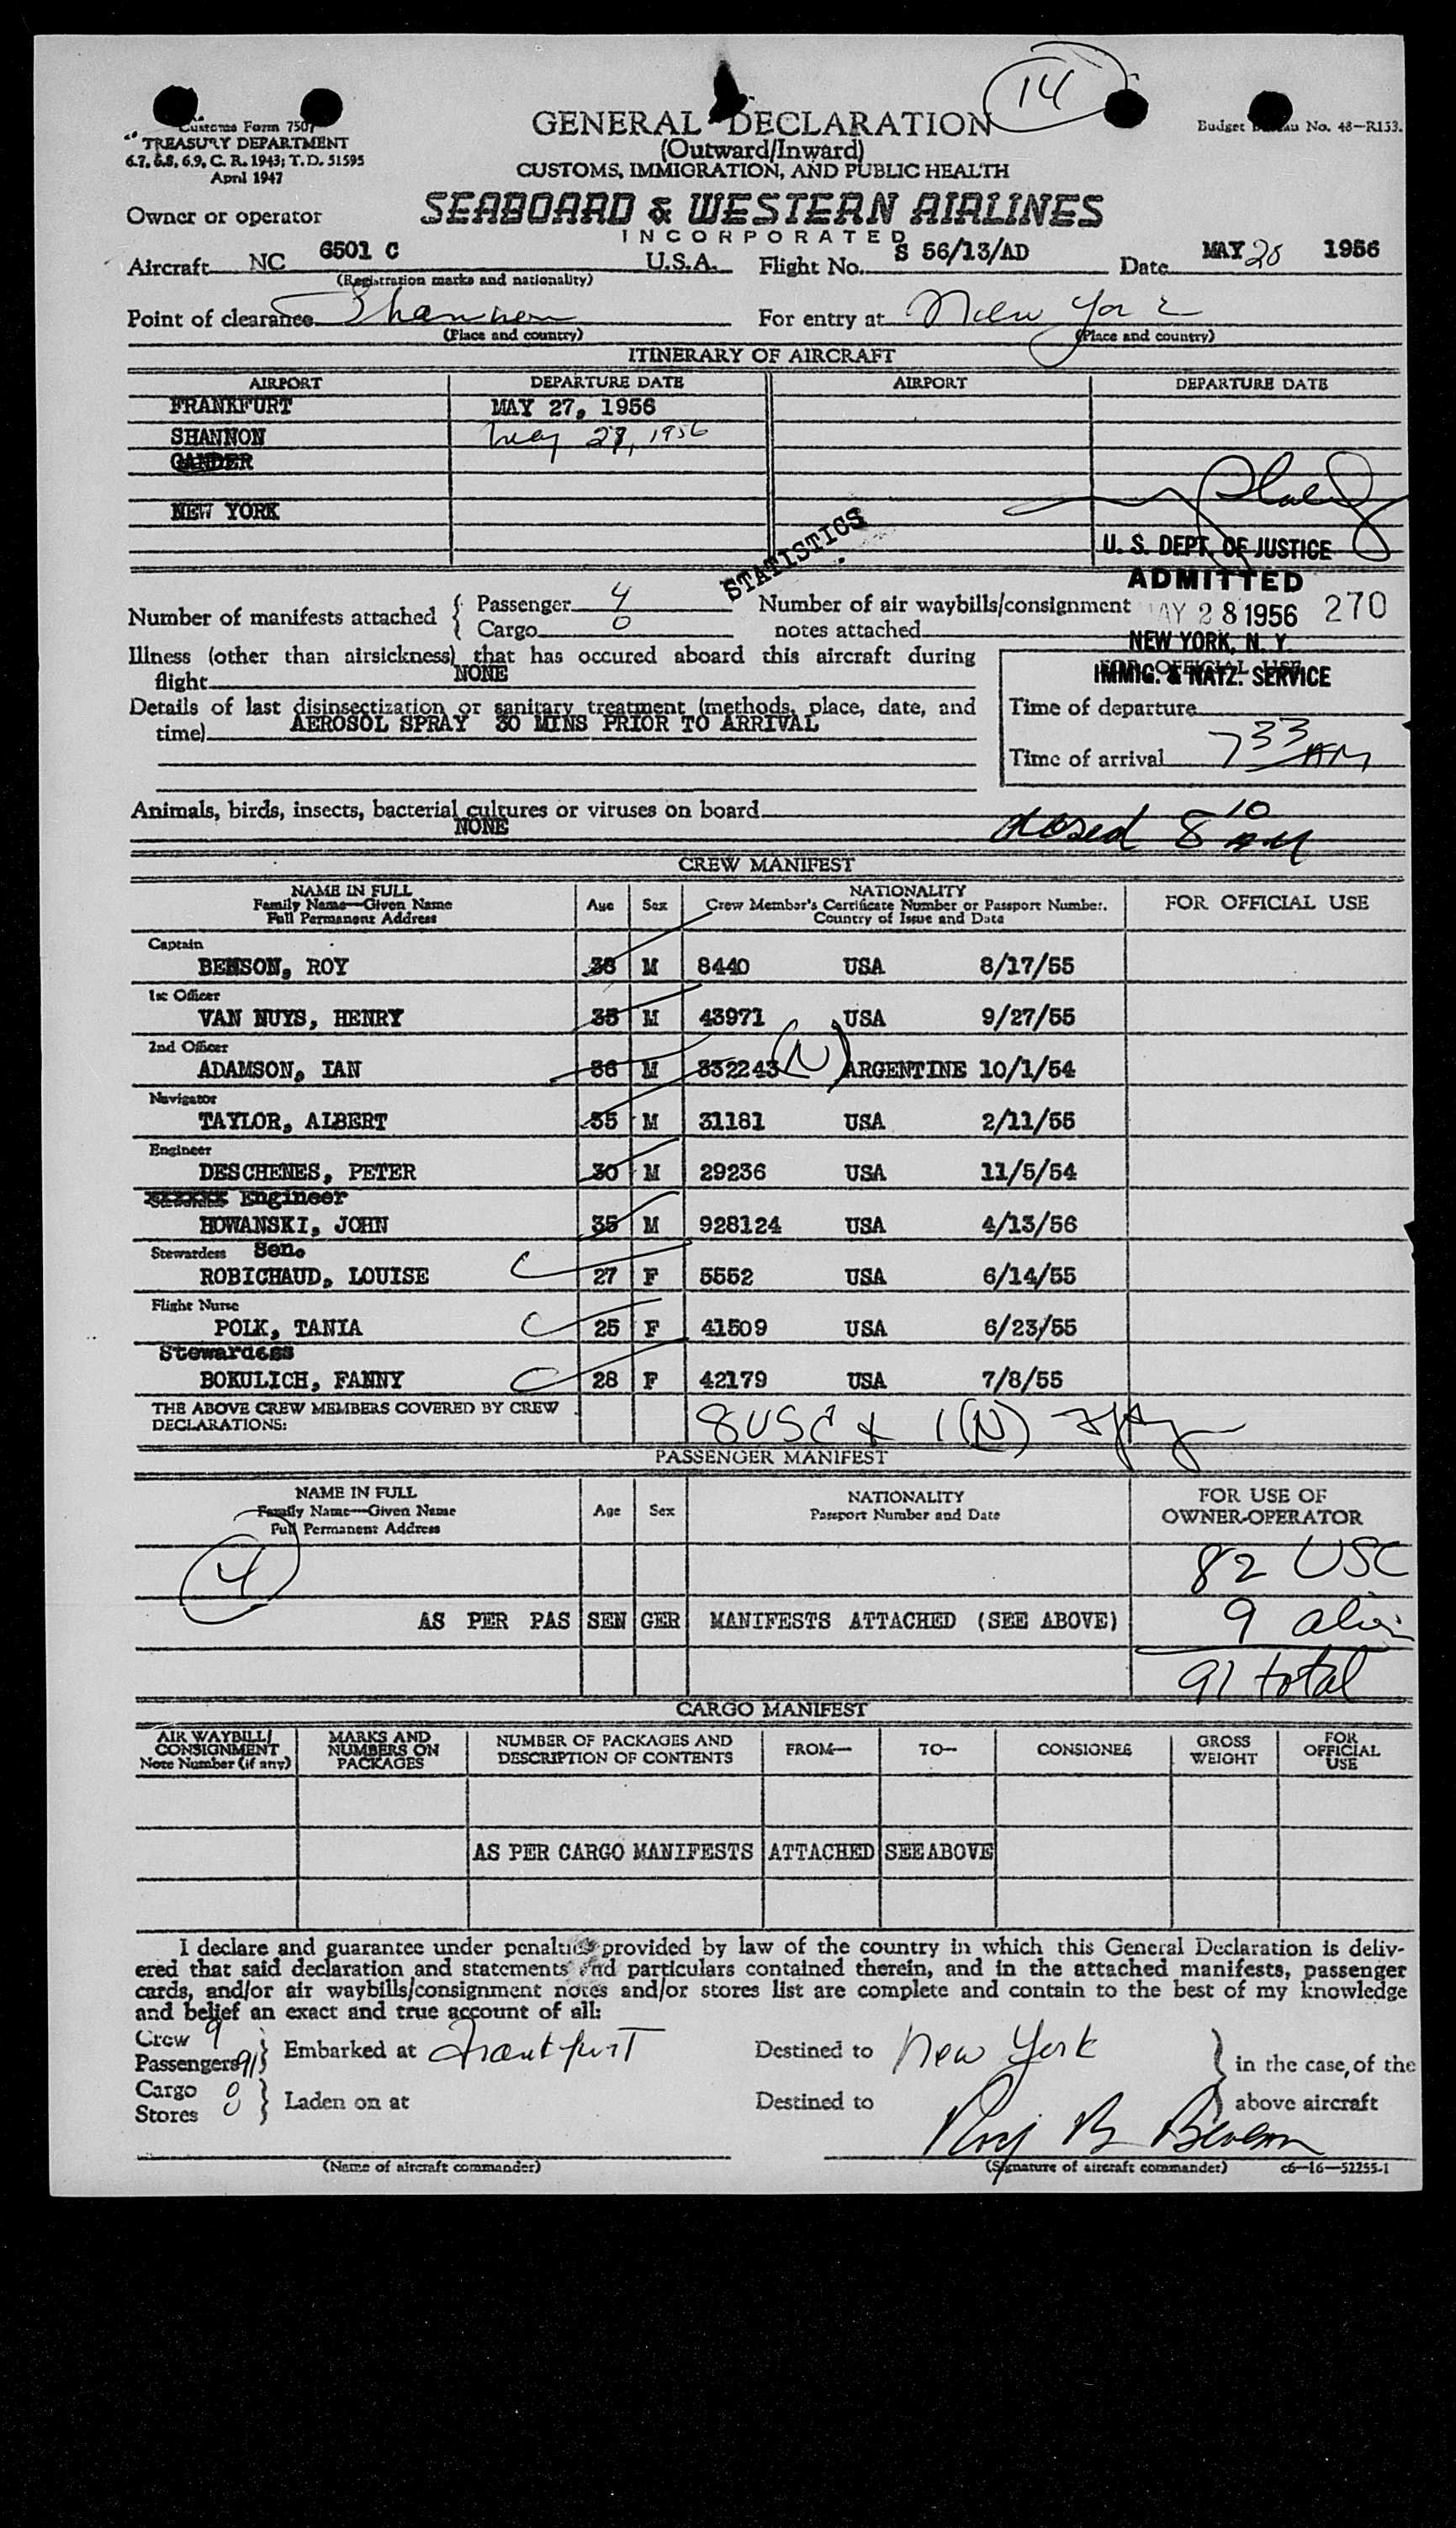 14
Customs Form 7507
TREASURY DEPARTMENT
6.7, 6.8, 6.9, C. R. 1943; T. D. 51595
April 1947
GENERAL DECLARATION
(Outward/Inward)
CUSTOMS, IMMIGRATION, AND PUBLIC HEALTH
Budget Bureau No. 48—R153.
Owner or operator SEABOARD & WESTERN AIRLINES
INCORPORATED
Aircraft NC 6501 C U.S.A. Flight No. S 56/13/AD Date MAY 28 1956
(Registration marks and nationality)
Point of clearance Shannon For entry at New York
(Place and country) (Place and country)
ITINERARY OF AIRCRAFT
AIRPORT DEPARTURE DATE AIRPORT DEPARTURE DATE
FRANKFURT MAY 27, 1956
SHANNON May 27, 1956
GANDER
NEW YORK
STATISTICS
U. S. DEPT. OF JUSTICE
ADMITTED
MAY 28 1956 270
NEW YORK, N. Y.
IMMIG. & NATZ. SERVICE
Number of manifests attached { Passenger 4
Cargo 0
Number of air waybills/consignment
notes attached
Illness (other than airsickness) that has occured aboard this aircraft during
flight NONE
FOR OFFICIAL USE
Details of last disinsectization or sanitary treatment (methods, place, date, and
time) AEROSOL SPRAY 30 MINS PRIOR TO ARRIVAL
Time of departure
Time of arrival 7 33 AM
Animals, birds, insects, bacterial cultures or viruses on board
NONE
closed 8 10 AM
CREW MANIFEST
NAME IN FULL
Family Name—Given Name
Full Permanent Address
Age Sex
NATIONALITY
Crew Member's Certificate Number or Passport Number.
Country of Issue and Date
FOR OFFICIAL USE
Captain
BENSON, ROY 38 M 8440 USA 8/17/55
1st Officer
VAN NUYS, HENRY 35 M 43971 USA 9/27/55
2nd Officer
ADAMSON, IAN 36 M 332243 (N) ARGENTINE 10/1/54
Navigator
TAYLOR, ALBERT 35 M 31181 USA 2/11/55
Engineer
DESCHENES, PETER 30 M 29236 USA 11/5/54
Engineer
HOWANSKI, JOHN 35 M 928124 USA 4/13/56
Stewardess Sen.
ROBICHAUD, LOUISE 27 F 5552 USA 6/14/55
Flight Nurse
POLK, TANIA 25 F 41509 USA 6/23/55
Stewardess
BOKULICH, FANNY 28 F 42179 USA 7/8/55
THE ABOVE CREW MEMBERS COVERED BY CREW
DECLARATIONS:
8 USC & 1 (N)
PASSENGER MANIFEST
NAME IN FULL
Family Name—Given Name
Full Permanent Address
Age Sex
NATIONALITY
Passport Number and Date
FOR USE OF
OWNER-OPERATOR
4
82 USC
AS PER PAS SEN GER MANIFESTS ATTACHED (SEE ABOVE) 9 alien
91 total
CARGO MANIFEST
AIR WAYBILL/
CONSIGNMENT
Note Number (if any)
MARKS AND
NUMBERS ON
PACKAGES
NUMBER OF PACKAGES AND
DESCRIPTION OF CONTENTS
FROM— TO— CONSIGNEE
GROSS
WEIGHT
FOR
OFFICIAL
USE
AS PER CARGO MANIFESTS ATTACHED SEE ABOVE
I declare and guarantee under penalties provided by law of the country in which this General Declaration is deliv-
ered that said declaration and statements and particulars contained therein, and in the attached manifests, passenger
cards, and/or air waybills/consignment notes and/or stores list are complete and contain to the best of my knowledge
and belief an exact and true account of all:
Crew 9
Passengers 91 } Embarked at Frankfurt Destined to New York } in the case, of the
Cargo 0
Stores 0 } Laden on at Destined to above aircraft
Roy B Benson
(Name of aircraft commander) (Signature of aircraft commander) c6—16—52255-1